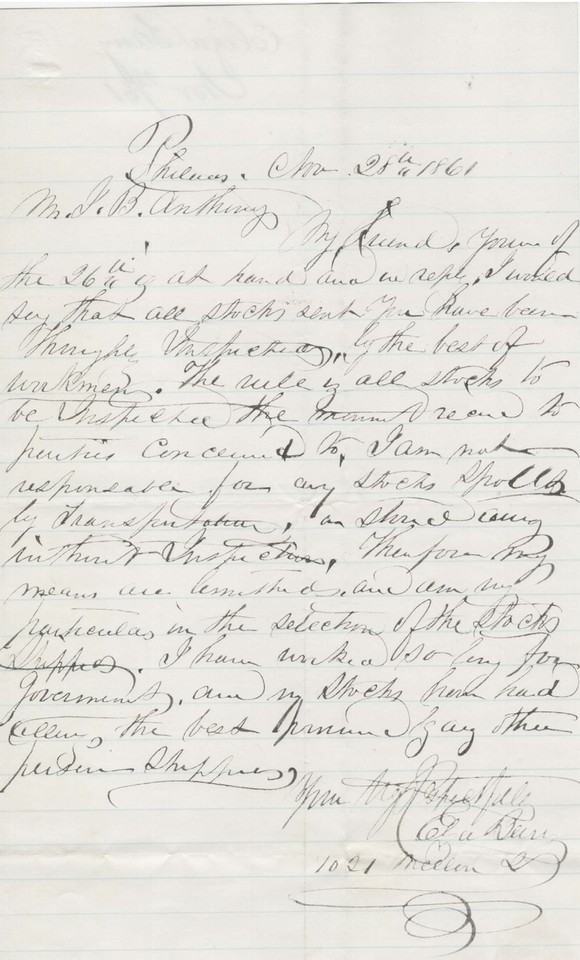 Philada. Nov 28th 1861
Mr. J. B. Anthony
My friend, yours of
the 26th is at hand and in reply I would
say that all stocks sent you have been
Inspected, by the best of
workmen. The rule is all stocks to
be Inspected the to
parties Concerned to, I am not
responsable for any stocks
by Transportation, or stored away
without Inspection, Therefore my
means are limited, and am very
particular in the selection of the Stocks
Shipped. I have worked so long for
Government, and my stocks have had
the best by any other
person shipped,
Your Respectfully
1021 St